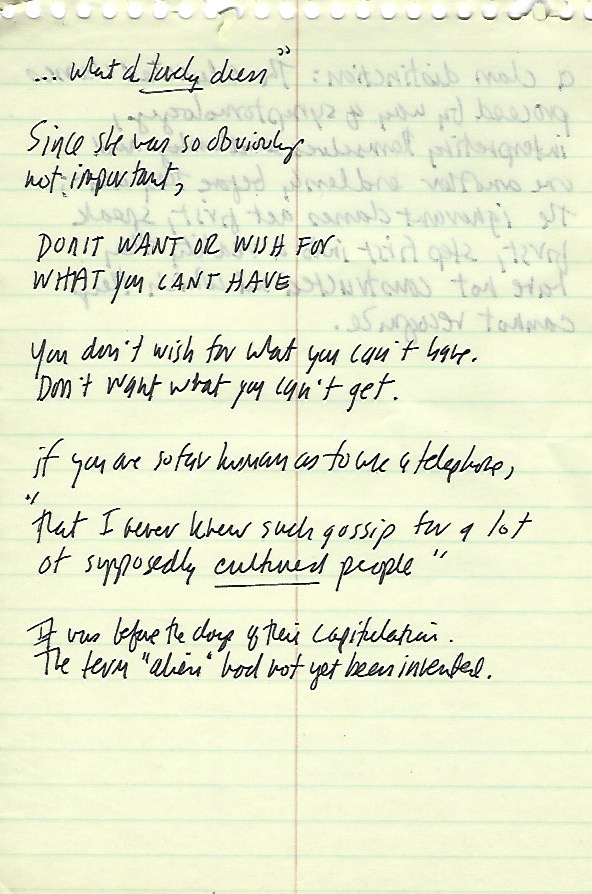 ....what a lovely dress"
Since she was so obviously
not important,
DON'T WANT OR WISH FOR
WHAT YOU CANT HAVE
You don't wish for what you can't have.
Don't want what you can't get.
if you are so far human as to use a telephone,
"that I never knew such gossip for a lot
of supposedly cultured people"
It was before the days of their capitulation.
The term "alien" had not yet been invented.